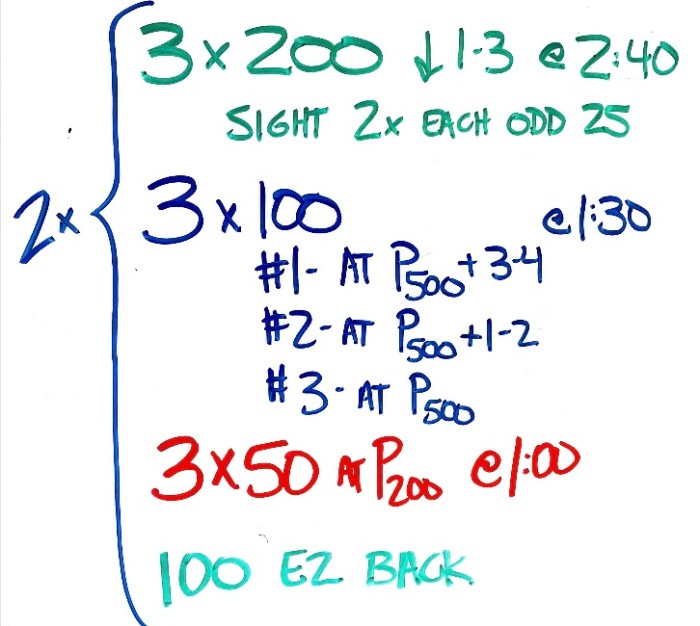 3 x 200 ↓1-3 @ 2:40
SIGHT 2x EACH ODD 25
2x
3 x 100 @ 1:30
#1- AT P500 + 3-4
#2- AT P500 + 1-2
#3- AT P500
3x50 AT P200 @ 1:00
100 EZ BACK